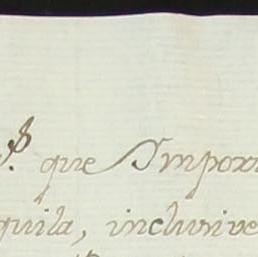 que Impor
quila, inclusive